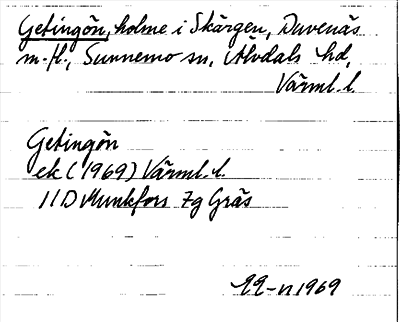 Getingön, holme i Skärgen, Duvenäs
m.fl., Sunnemo sn, Älvdals hd,
Värml. l.
Getingön
ek (1969) Värml. l.
11D Munkfors 7g Gräs
1969